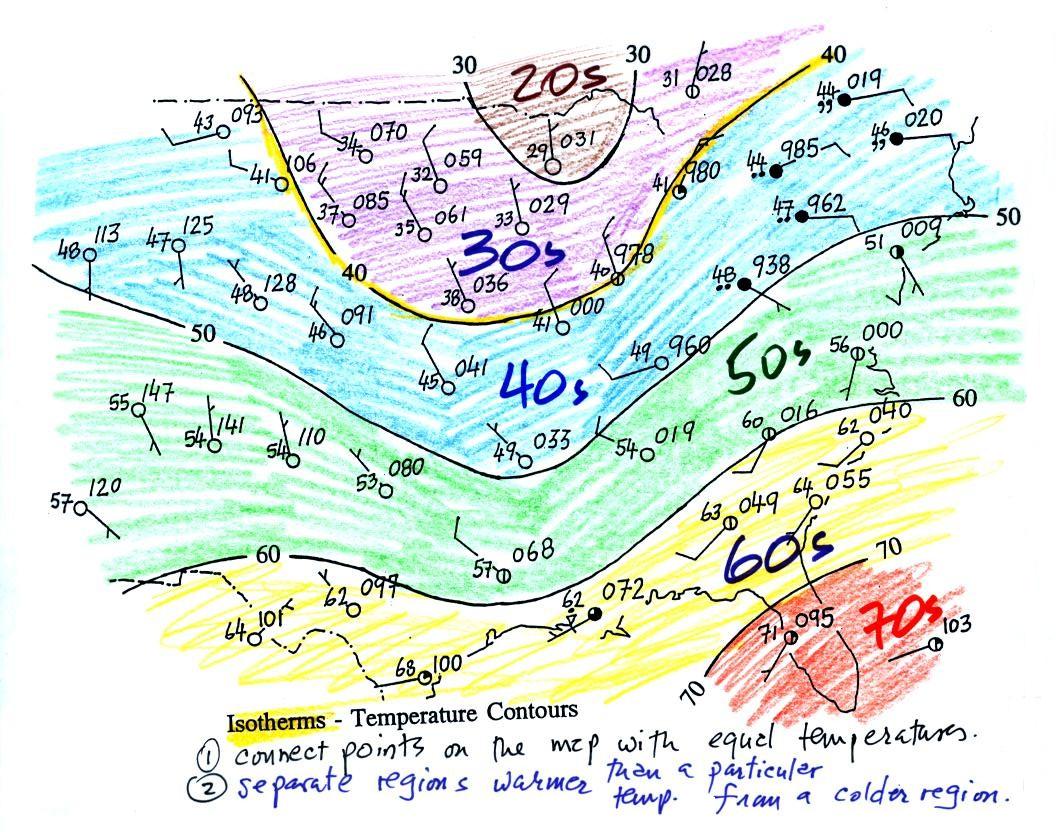 30
20s
30
31 028
40
44 019
43 093
34 070
29 031
46 020
41 106
32 059
41 980
44 985
37 085
35 061
33 029
47 962
50
48 113
47 125
30s
40 978
51 009
40
48 128
38 036
41 000
48 938
50
46 091
45 041
40s
49 960
50s
56 000
60
55 147
54 141
54 110
49 033
54 019
60 016
62 040
53 080
57 120
63 049
64 055
60
57 068
60s
70
62 097
62 072
64 101
71 095
70s
103
68 100
70
Isotherms - Temperature Contours
① connect points on the map with equal temperatures.
② separate regions warmer than a particular
temp. from a colder region.